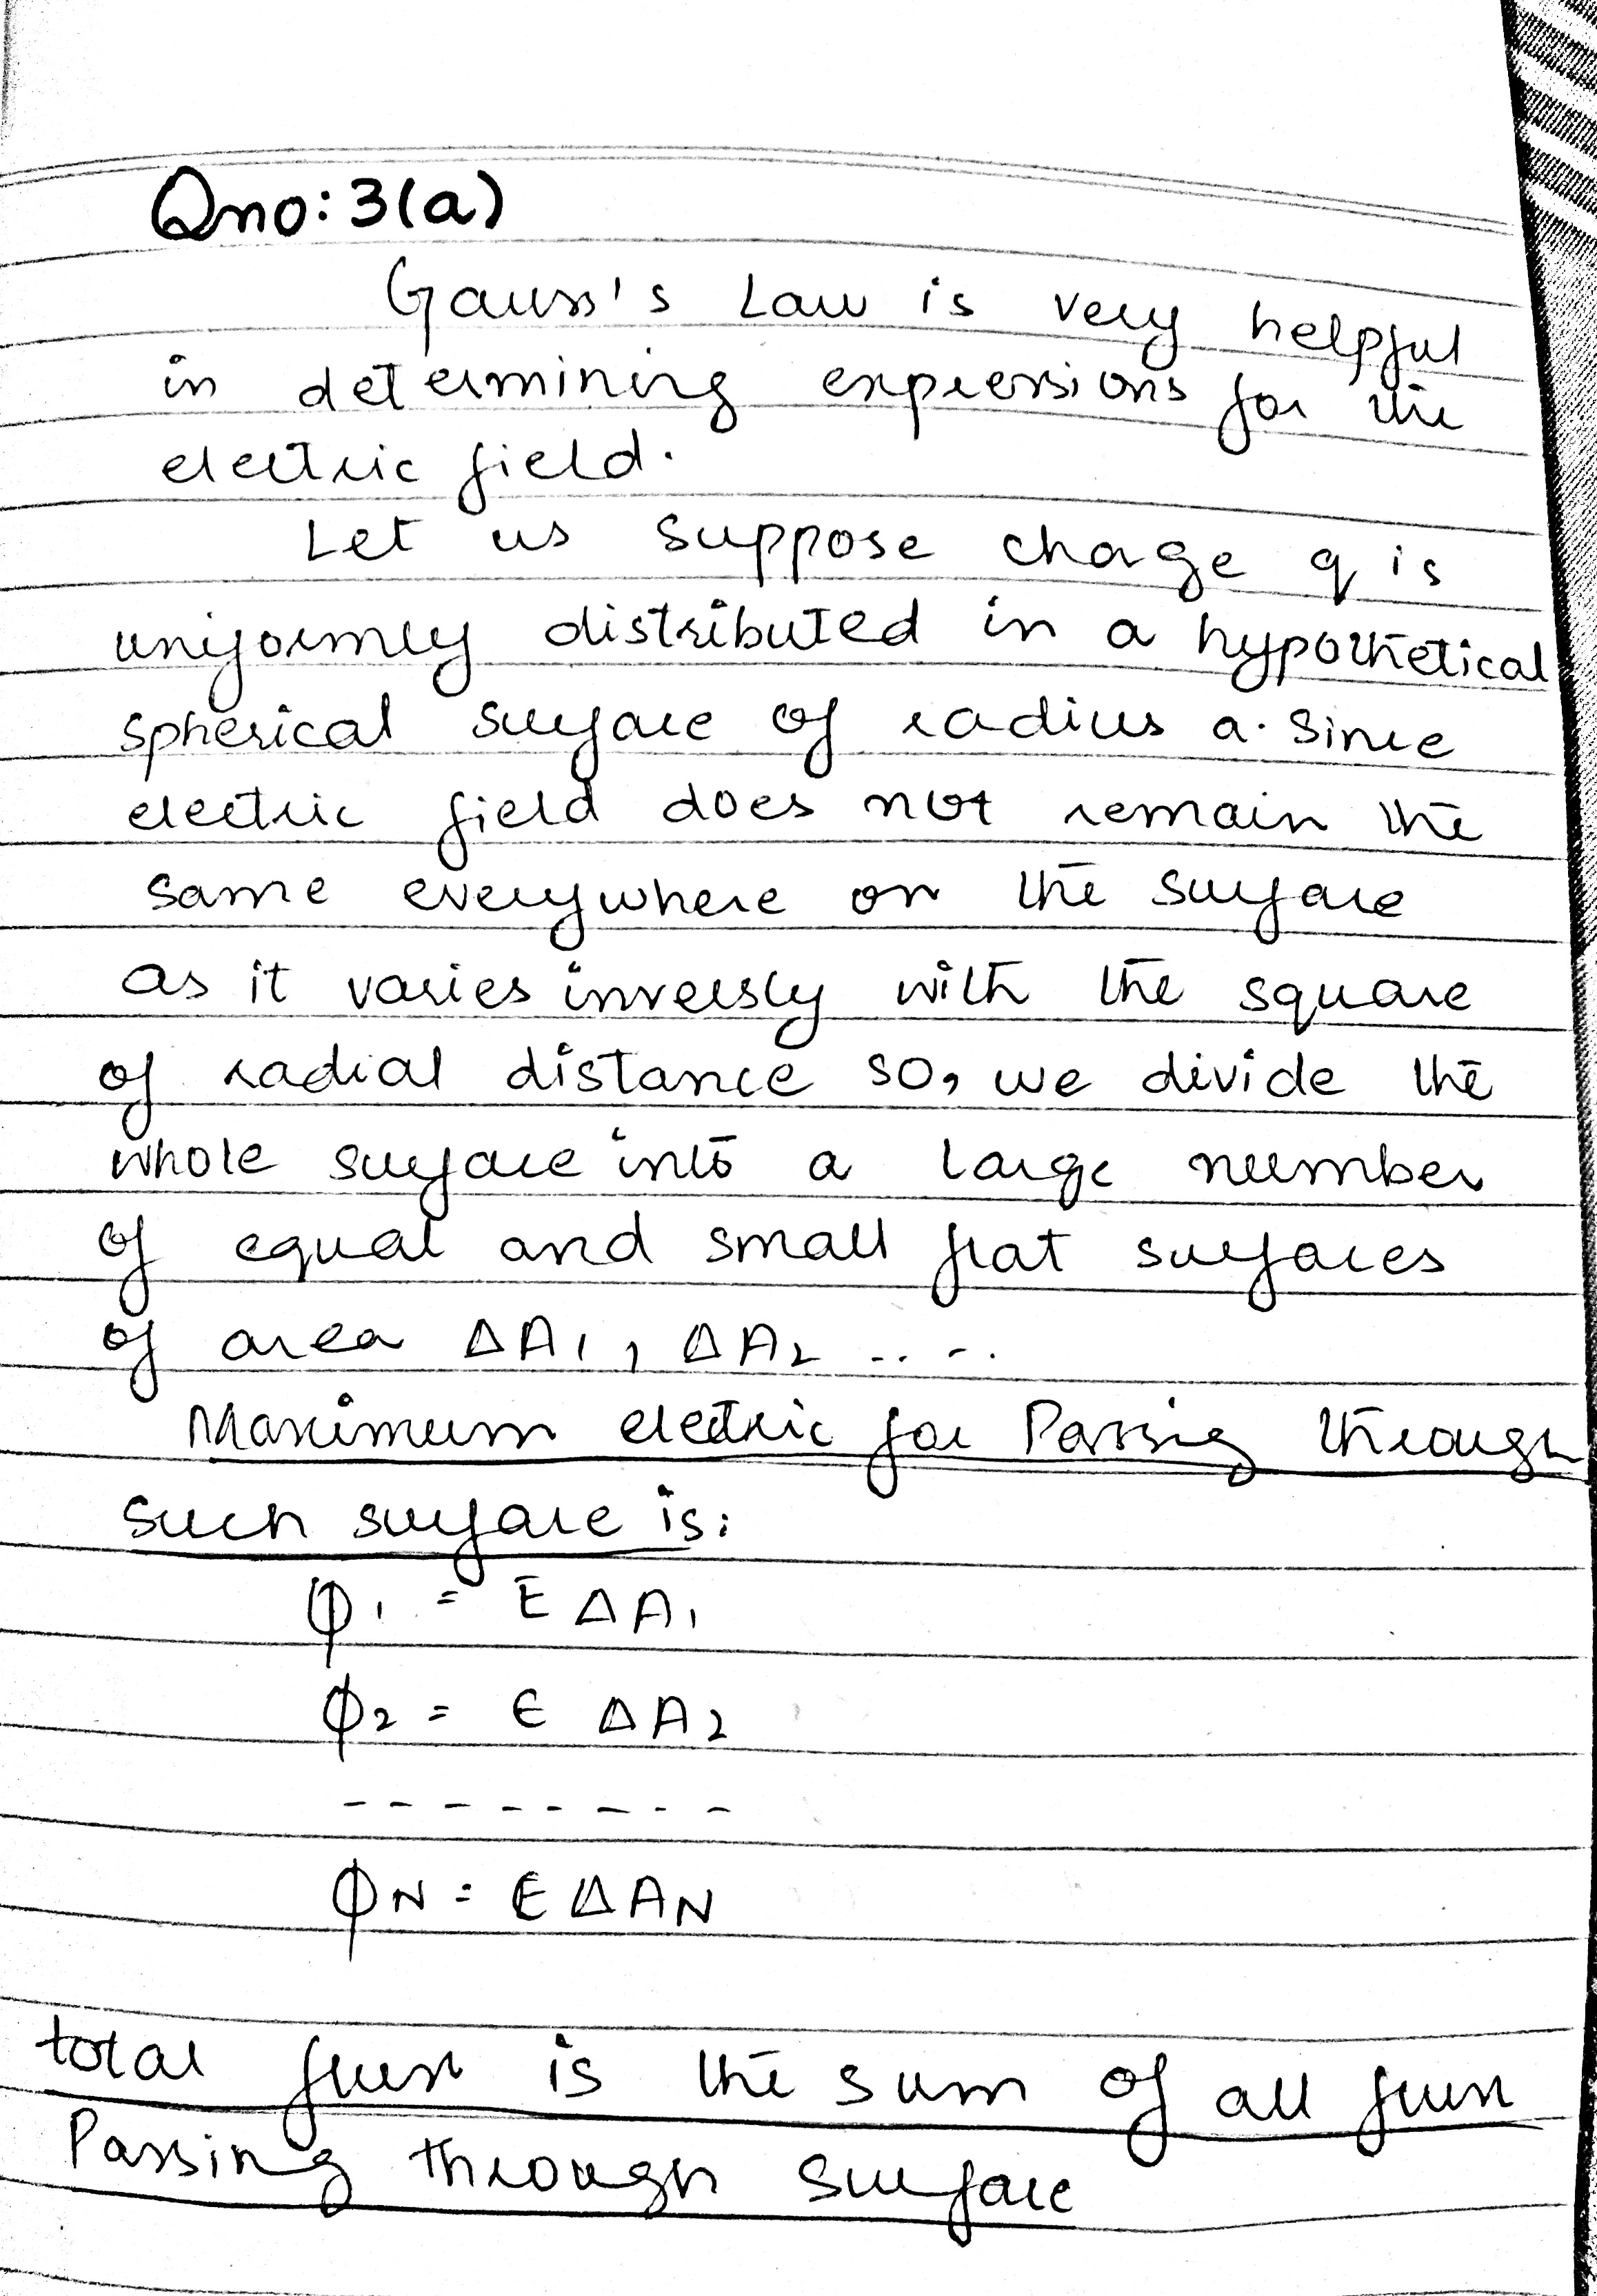 Qno: 3(a)
Gauss's Law is very helpful
in determining expressions for the
electric field.
Let us suppose charge q is
uniformly distributed in a hypothetical
spherical surface of radius a. Since
electric field does not remain the
same everywhere on the surface
as it varies inversly with the square
of radial distance so, we divide the
whole surface into a large number
of equal and small flat surfaces
of area ΔA1, ΔA2 ....
Maximum electric for Passing through
such surface is:
φ1 = E ΔA1
φ2 = E ΔA2
- - - - - - - -
φN = E ΔAN
total flux is the sum of all flux
Passing through surface